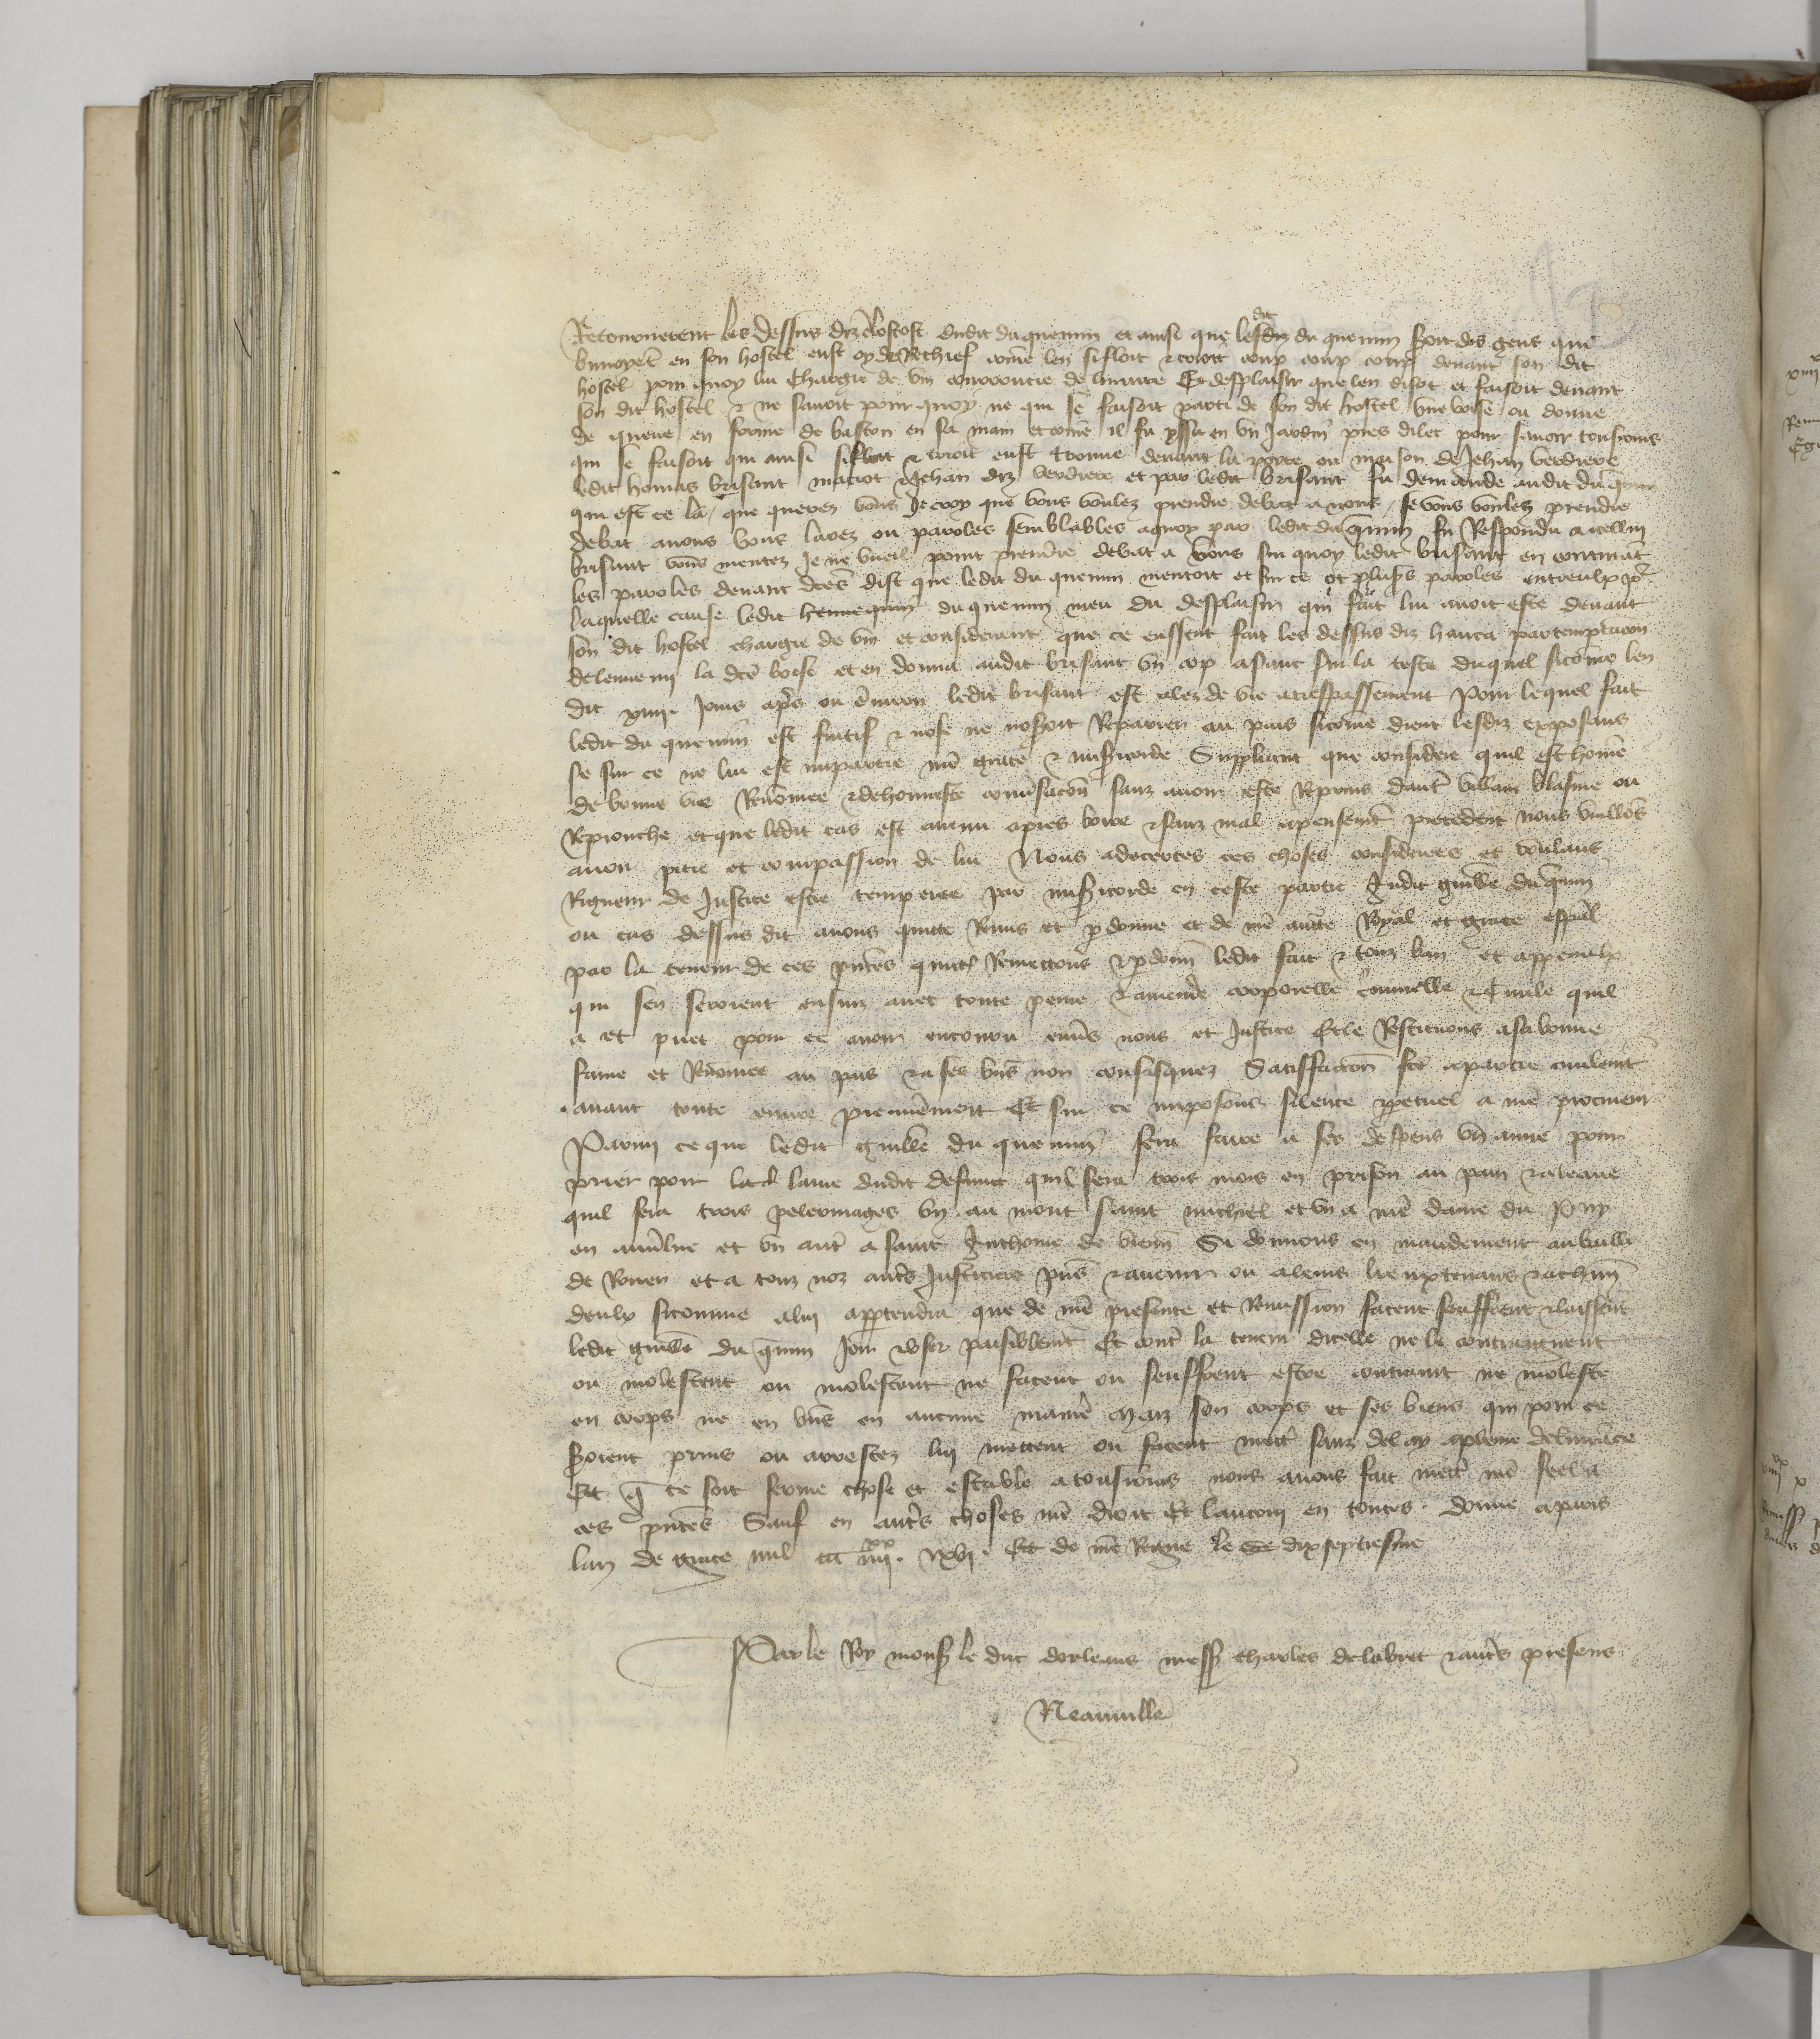 Retournerent les dessus diz a lostost dudit du quemin et ainsi que ledit du quemin hors des gens que
buvoyēt en son hostel eust oy de Rechief cōme len sifloit et crioit coup coup coup devant son dit
hostel pour quoy lui chargie de vin courroucie de linjure Et desplaisir que len disot et faisoit devant
son dit hostel & ne savoit pour quoy ne qui se faisoit parti de son dit hostel une boise ou douve
de queue en forme de baston en sa main et cōme il fu yssu en un Jardin pres dilec pour savoir tousjours
qui se faisoit qui ainsi sifloit & crioit eust trouve devant la porte ou maison de Jehan verdiere
ledit homas brisant maciot & Jehan diz verdiere et par ledit brisant fu demande audit du q̄min
qui est ce la / que querez vous Je croy que vous voulez prendre debat a nous / se vous voulez prendre
debat a nous vous lavez ou paroles semblables a quoy par ledit du q̄min fu Respondu a icellui
brisant vous mentez Je ne vueil point prendre debat a vous sur quoy ledit brisant en continuāt
les paroles devant dc̄es dist que ledit du quemin mentoit et sur ce ot plus̄s paroles entreulx po^r
laquelle cause ledit hennequin du quemin meu du desplaisir qui fait lui avoit este devant
son dit hostel chargie de vin et considerant que ce eussent fait les dessus diz hanca par temptacōn
de lennemi la dc̄e boise et en donna audit brisant un cop asanc sur la teste duquel sicōme len
dit xiiii. jours ap̄s ou ēviron ledit brisant est alez de vie a trespassement Pour lequel fait
ledit du quemin est fuitif & nose ne noseroit Repairier au pais sicōme dient lesdiz exposans
se sur ce ne lui est impartie nr̄e grace & mis̄icorde Suppliant que considere quil est hom̄e
de bonne vie Renōmee & de honneste conv̄sacōn sanz avoir este Reprins daut̄ villain blasme ou
Reprouche et que ledit cas est avenu apres boire & sanz mal apensemēt precedent nous vuillōs
avoir pitie et compassion de lui Nous adecertes ces choses considerees et voulans
Rigueur de Justice estre temperee par mis̄icorde en ceste partie Audit guill̄e du q̄min
ou cas dessus dit avons quitte Remis et p̄donne et de nr̄e auct̄e Royal et grace esp̄al
par la teneur de ces p̄ntes quitt̄ Remettons & p̄donn̄ ledit fait & tout ban et appeaulx
qui sen seroient ensuiz avec toute peine & amende corporelle c̄minelle & Civile quil
a et puet pour ce avoir encouru env̄s nous et Justice Et le Restituons a sa bonne
fame et Renōmee au pais & a ses biēs non confisquez Satisfaccōn fc̄e a partie civilemt̄
avant toute euvre premieremēt Et sur ce imposons silence p̄petuel a nr̄e procureur
Parmi ce que ledit guill̄e du quemin fera faire a ses despens un annue pour
prier pour lac̄d lame dudit defunct quil sera trois mois en prison au pain & a leaue
quil fera trois pelerinages un au mont saint michiel et un a nr̄e dame du Puy
en auv̄gne et un autr̄ a saint Anthoine de vienn̄ Si donnons en mandement au bailli
de Rouen et a touz noz autr̄s Justiciers p̄ns & avenir ou a leurs lieuxtenans & a chūn
deulx si comme a lui appartendra que de nr̄e presente et Remission facent seuffrent & laissent
ledit guill̄e du q̄min Joir & user paisiblemt̄ Et contr̄ la teneur dicelle ne le contraignent
ou molestent ou molestent ne facent ou seuffrent estre contraint ne moleste
en corps ne en biēs en aucune manier̄ Maiz son corps et ses biens qui pour ce
seroient prins ou arrestez lui mettent ou facent mett̄ sanz delay a plaine delivrāce
Et q̄ ce soit ferme chose et estable a tousjours nous avons fait mett̄ nr̄e seel a
ces p̄ntes Sauf en autr̄s choses nr̄e droit Et lautrui en toutes. Donne a paris
lan de grace mil ccc iiii^xx. xvi. Et de nr̄e Regne le dixseptiesme
Par le Roy mons̄ le duc dorleans mess̄ charles delabret & autr̄s presens
Neauville